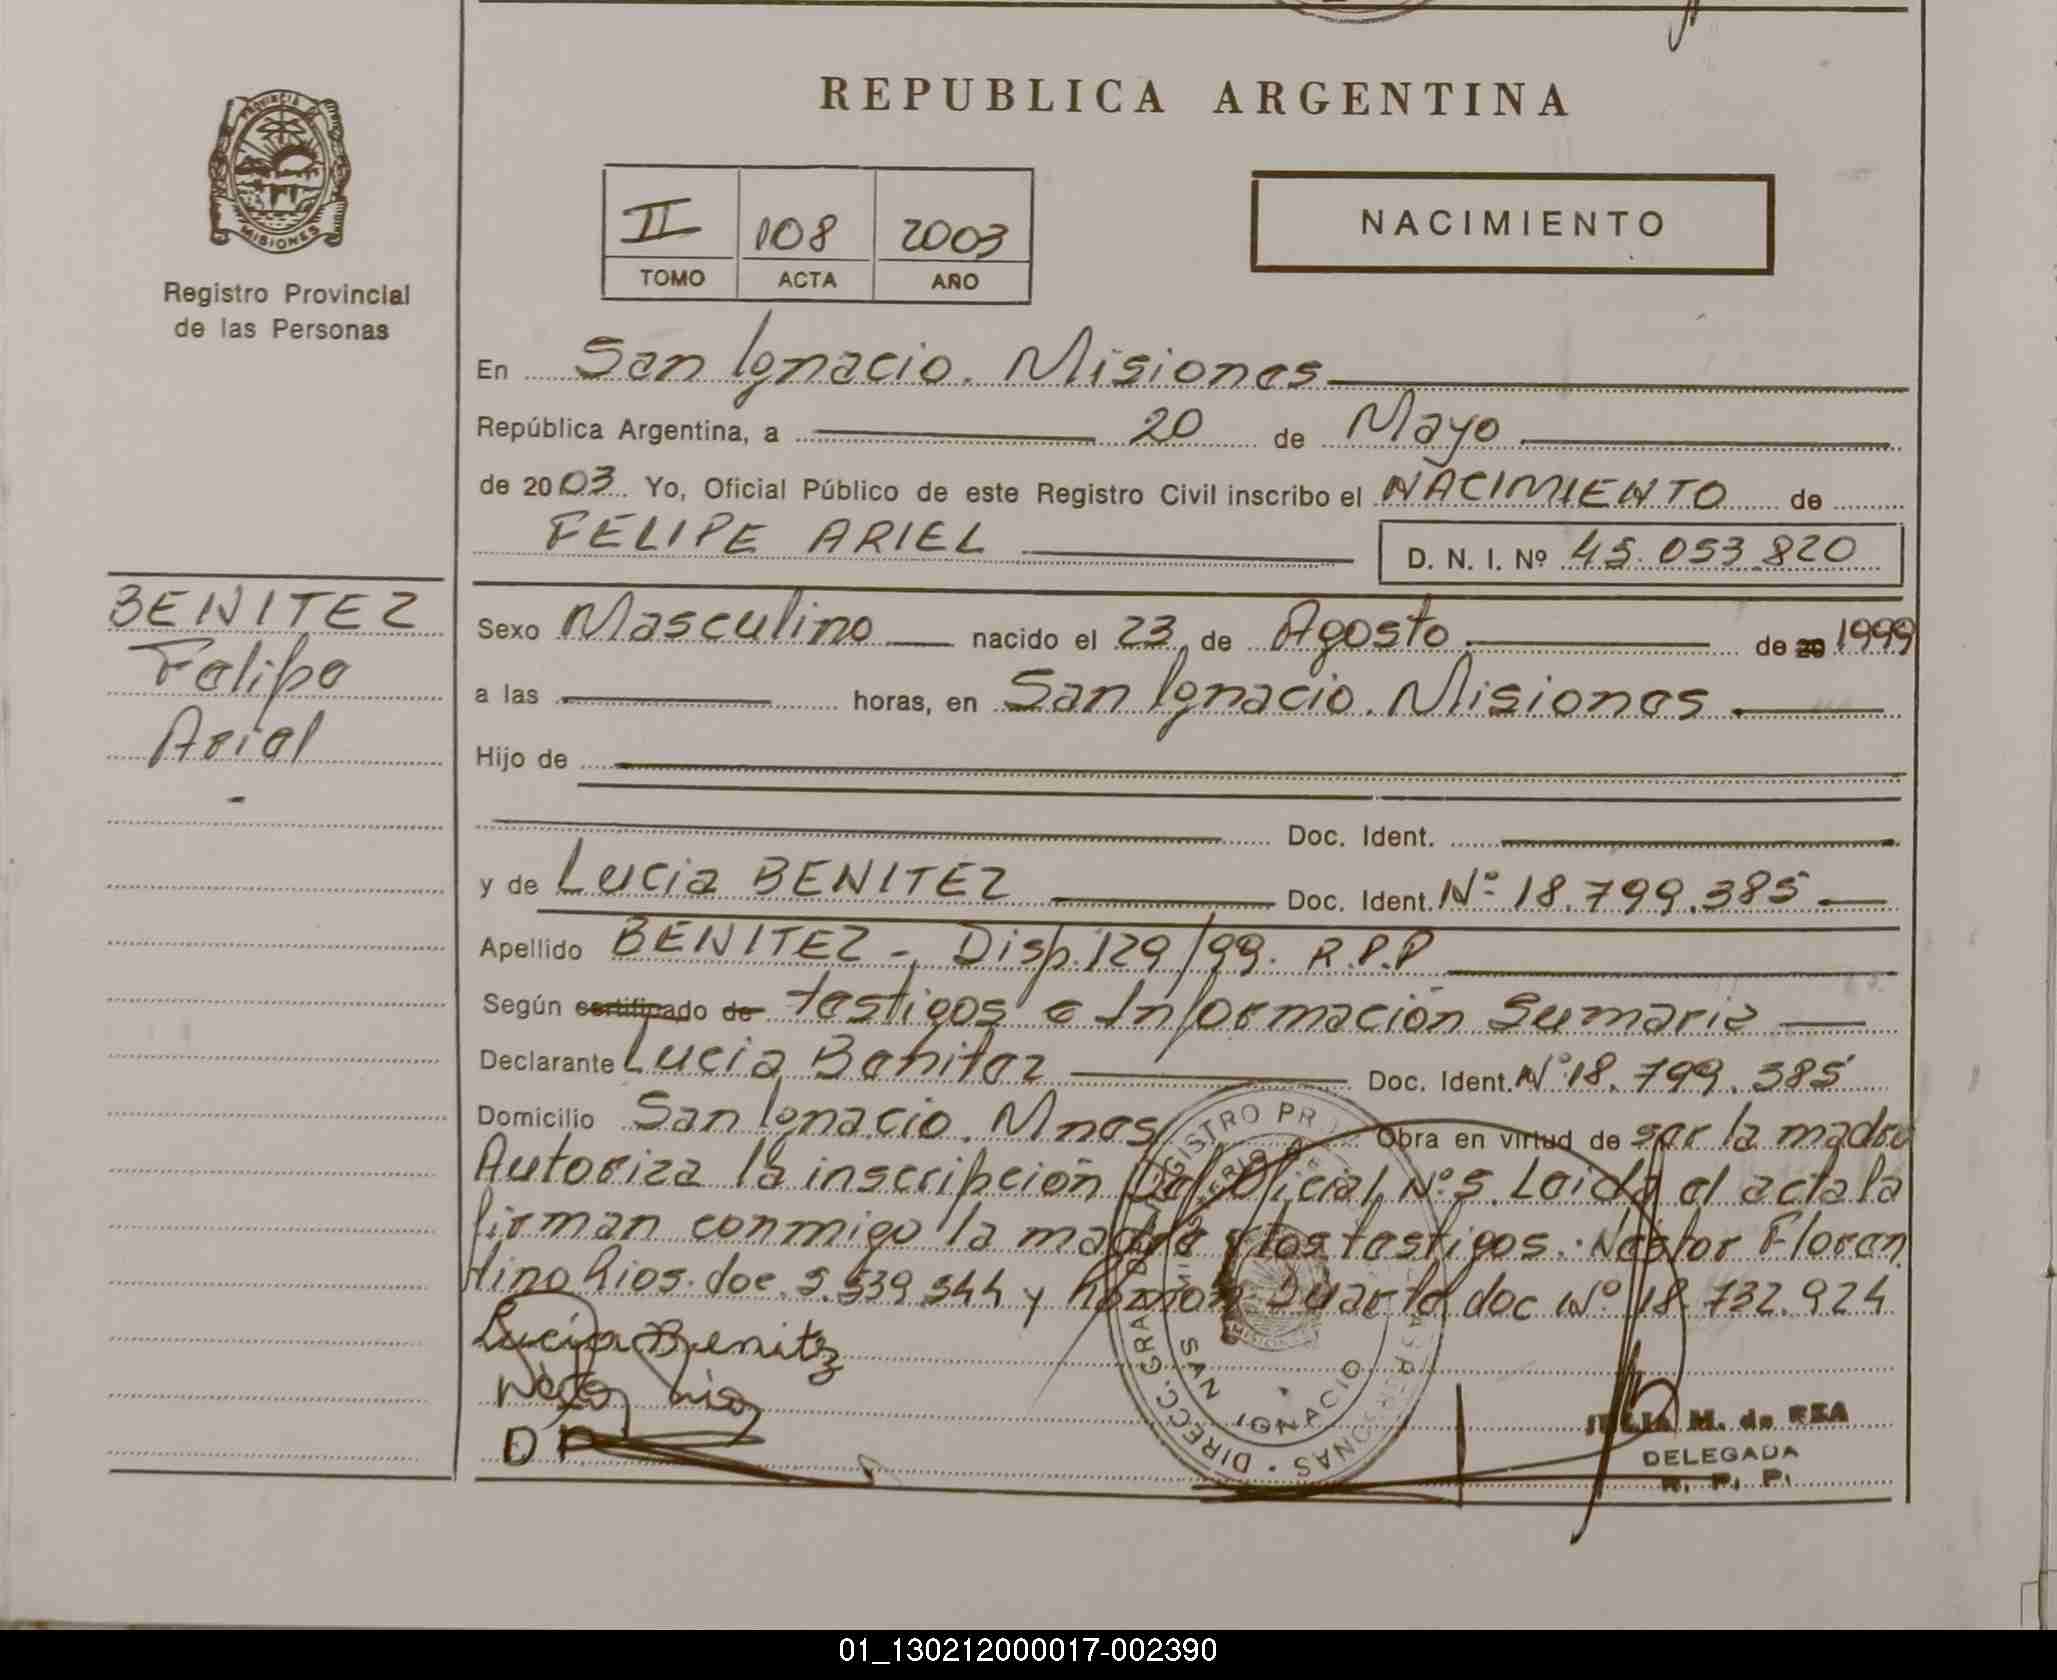 REPUBLICA ARGENTINA
PROVINCIA DE
MISIONES
Registro Provincial
de las Personas
II 108 2003
TOMO ACTA AÑO
NACIMIENTO
En San Ignacio. Misiones
República Argentina, a 20 de Mayo
de 2003 Yo, Oficial Público de este Registro Civil inscribo el NACIMIENTO de
FELIPE ARIEL D. N. I. Nº 45.053.820
BENITEZ
Felipe
Ariel
-
Sexo Masculino nacido el 23 de Agosto de 20 1999
a las horas, en San Ignacio. Misiones
Hijo de
Doc. Ident.
y de Lucia BENITEZ Doc. Ident. Nº 18.799.385
Apellido BENITEZ - Disp. 129/99. R.P.P
Según certificado de testigos e Información Sumaria
Declarante Lucia Benitez Doc. Ident. Nº 18.799.385
Domicilio San Ignacio. Mnes Obra en virtud de ser la madre
Autoriza la inscripción Del Oficial Nº 5. Leida el acta la
firman conmigo la madre y los testigos. Nestor Floren
tino Rios. doc. 5.539.544 y Ramon Duarte doc Nº 18.732.924
Lucia Benitez
Nestor Rios
D R
DIRECC. GRAL. REGISTRO PROV. DE LAS PERSONAS
SAN IGNACIO
JULIA M. de REA
DELEGADA
R. P. P.
01_130212000017-002390